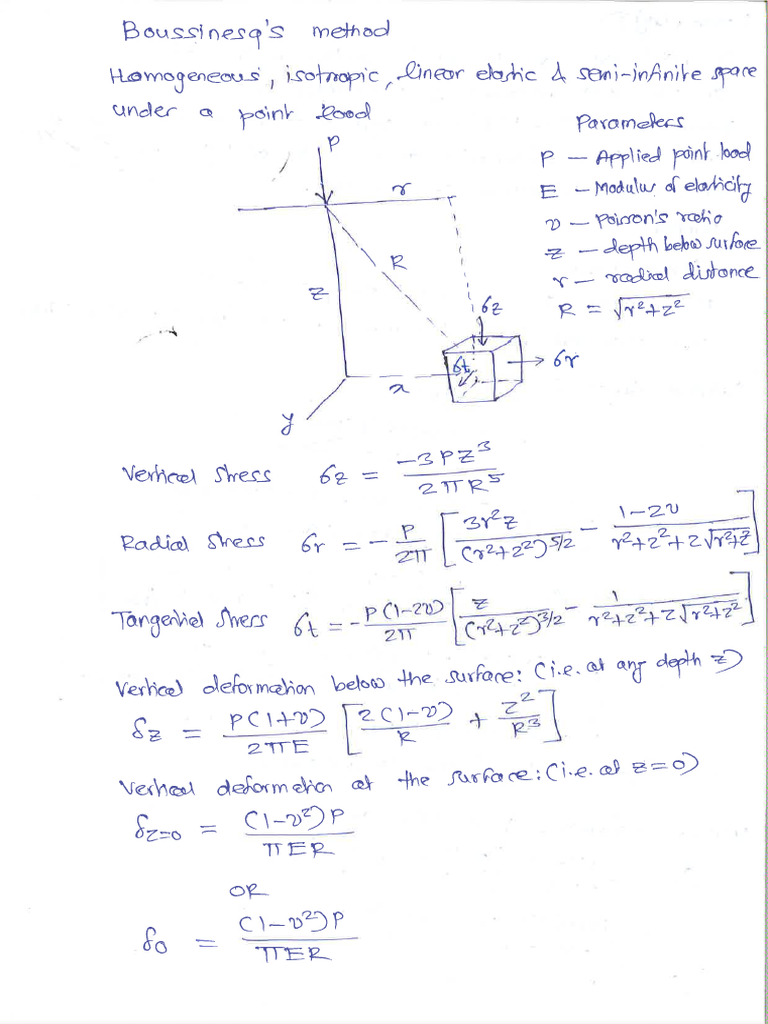 Boussinesq's method
Homogeneous, isotropic, linear elastic & semi-infinite space
under a point load
Parameters
P — Applied point load
E — Modulus of elasticity
ν — Poisson's ratio
z — depth below surface
r — radial distance
R = √(r²+z²)
P
r
R
z
σz
σt
σr
x
y
Vertical stress σz = -3Pz³ / 2πR⁵
Radial stress σr = - P/2π [ 3r²z / (r²+z²)^5/2 - 1-2ν / r²+z²+z√(r²+z) ]
Tangential stress σt = - P(1-2ν)/2π [ z / (r²+z²)^3/2 - 1 / r²+z²+z√(r²+z²) ]
Vertical deformation below the surface: (i.e. at any depth z)
δz = P(1+ν)/2πE [ 2(1-ν)/R + z²/R³ ]
Vertical deformation at the surface: (i.e. at z=0)
δz=0 = (1-ν²)P / πER
OR
δ0 = (1-ν²)P / πER